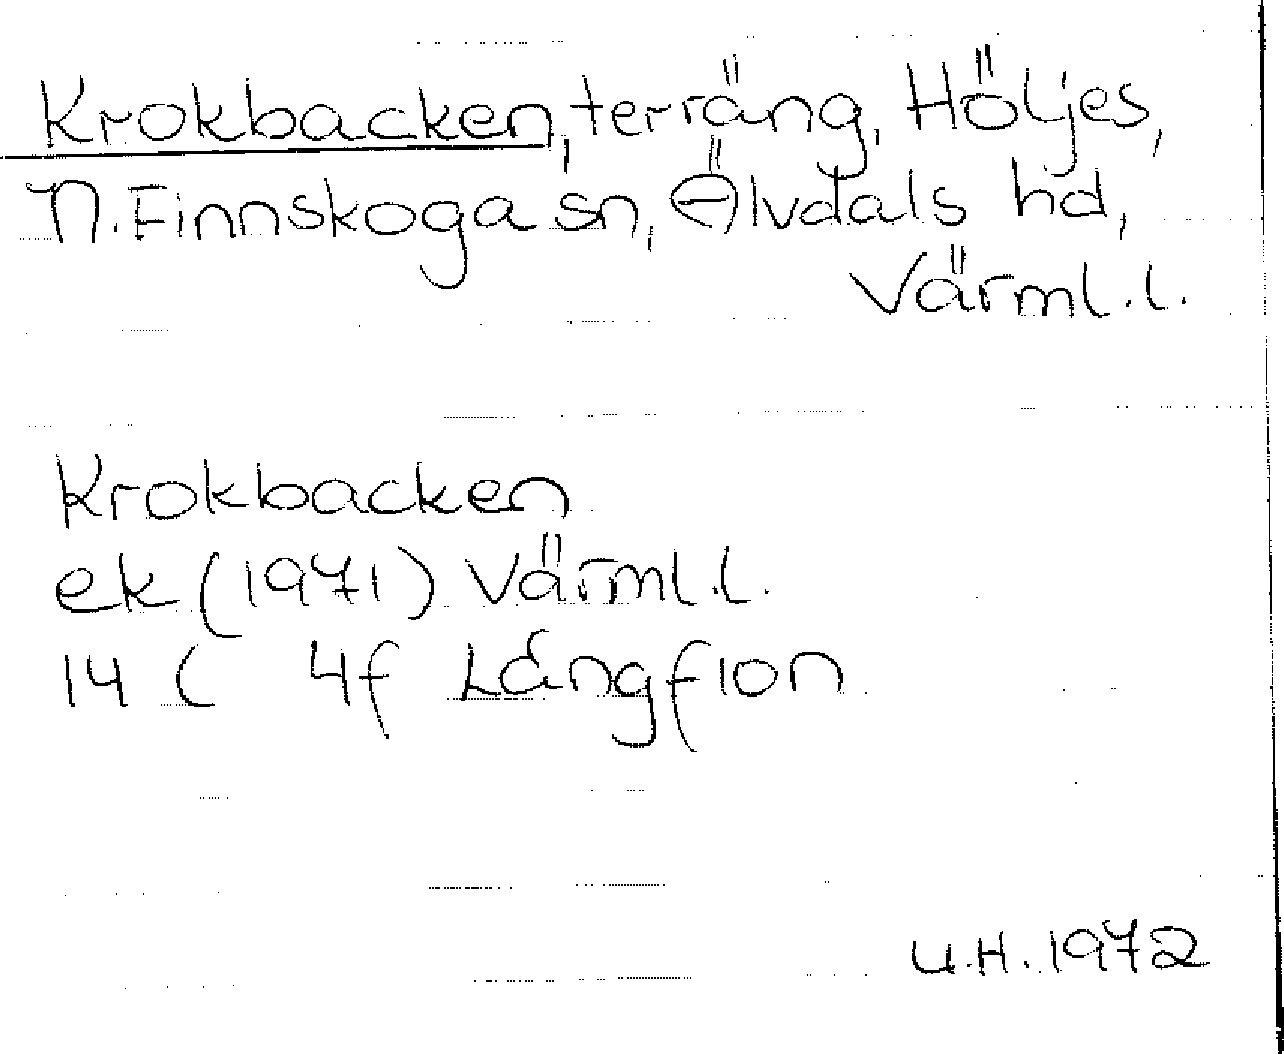 Krokbacken, terräng, Höljes,
N. Finnskoga sn, Älvdals hd,
Värml. l.
Krokbacken
ek (1971) Värml. l.
14 C 4f Långflon
U.H. 1972